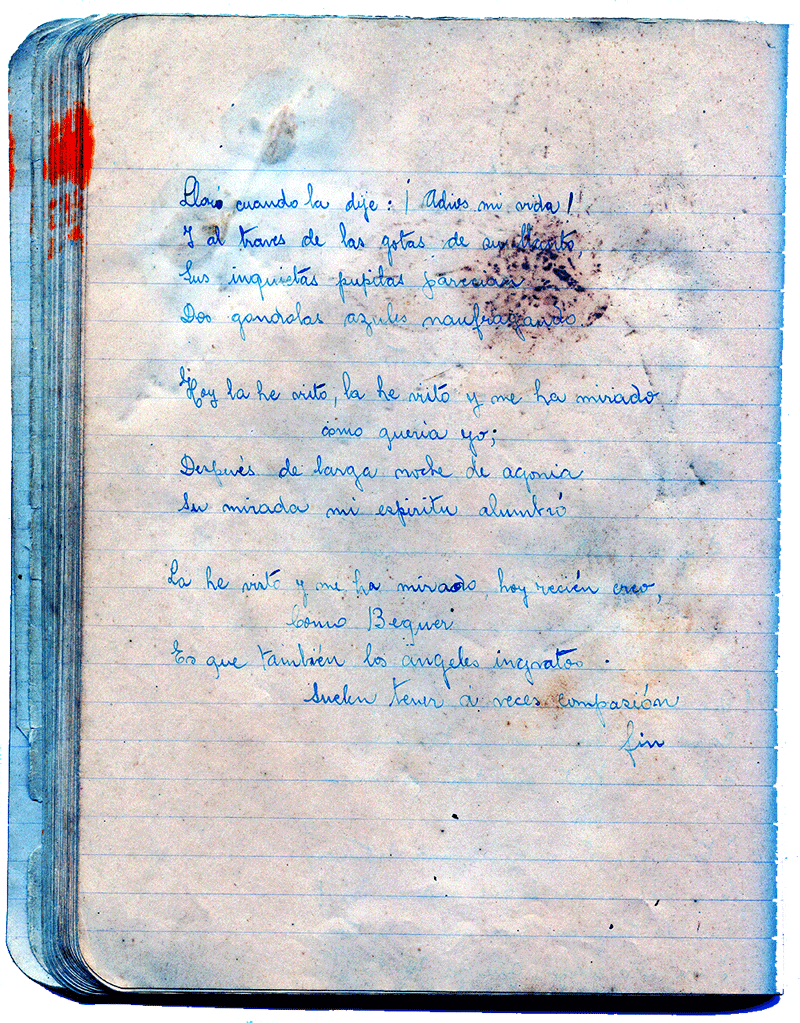 Lloró cuando la dije: ¡ Adios mi vida !
Y al traves de las gotas de su llanto,
Sus inquietas pupilas parecian
Dos gondolas azules naufragando.
Hoy la he visto, la he visto y me ha mirado
como queria yo;
Después de larga noche de agonia
Su mirada mi espiritu alumbró
La he visto y me ha mirado, hoy recién creo,
Como Bequer
Es que también los ángeles ingratos.
Suelen tener a veces compasión
fin